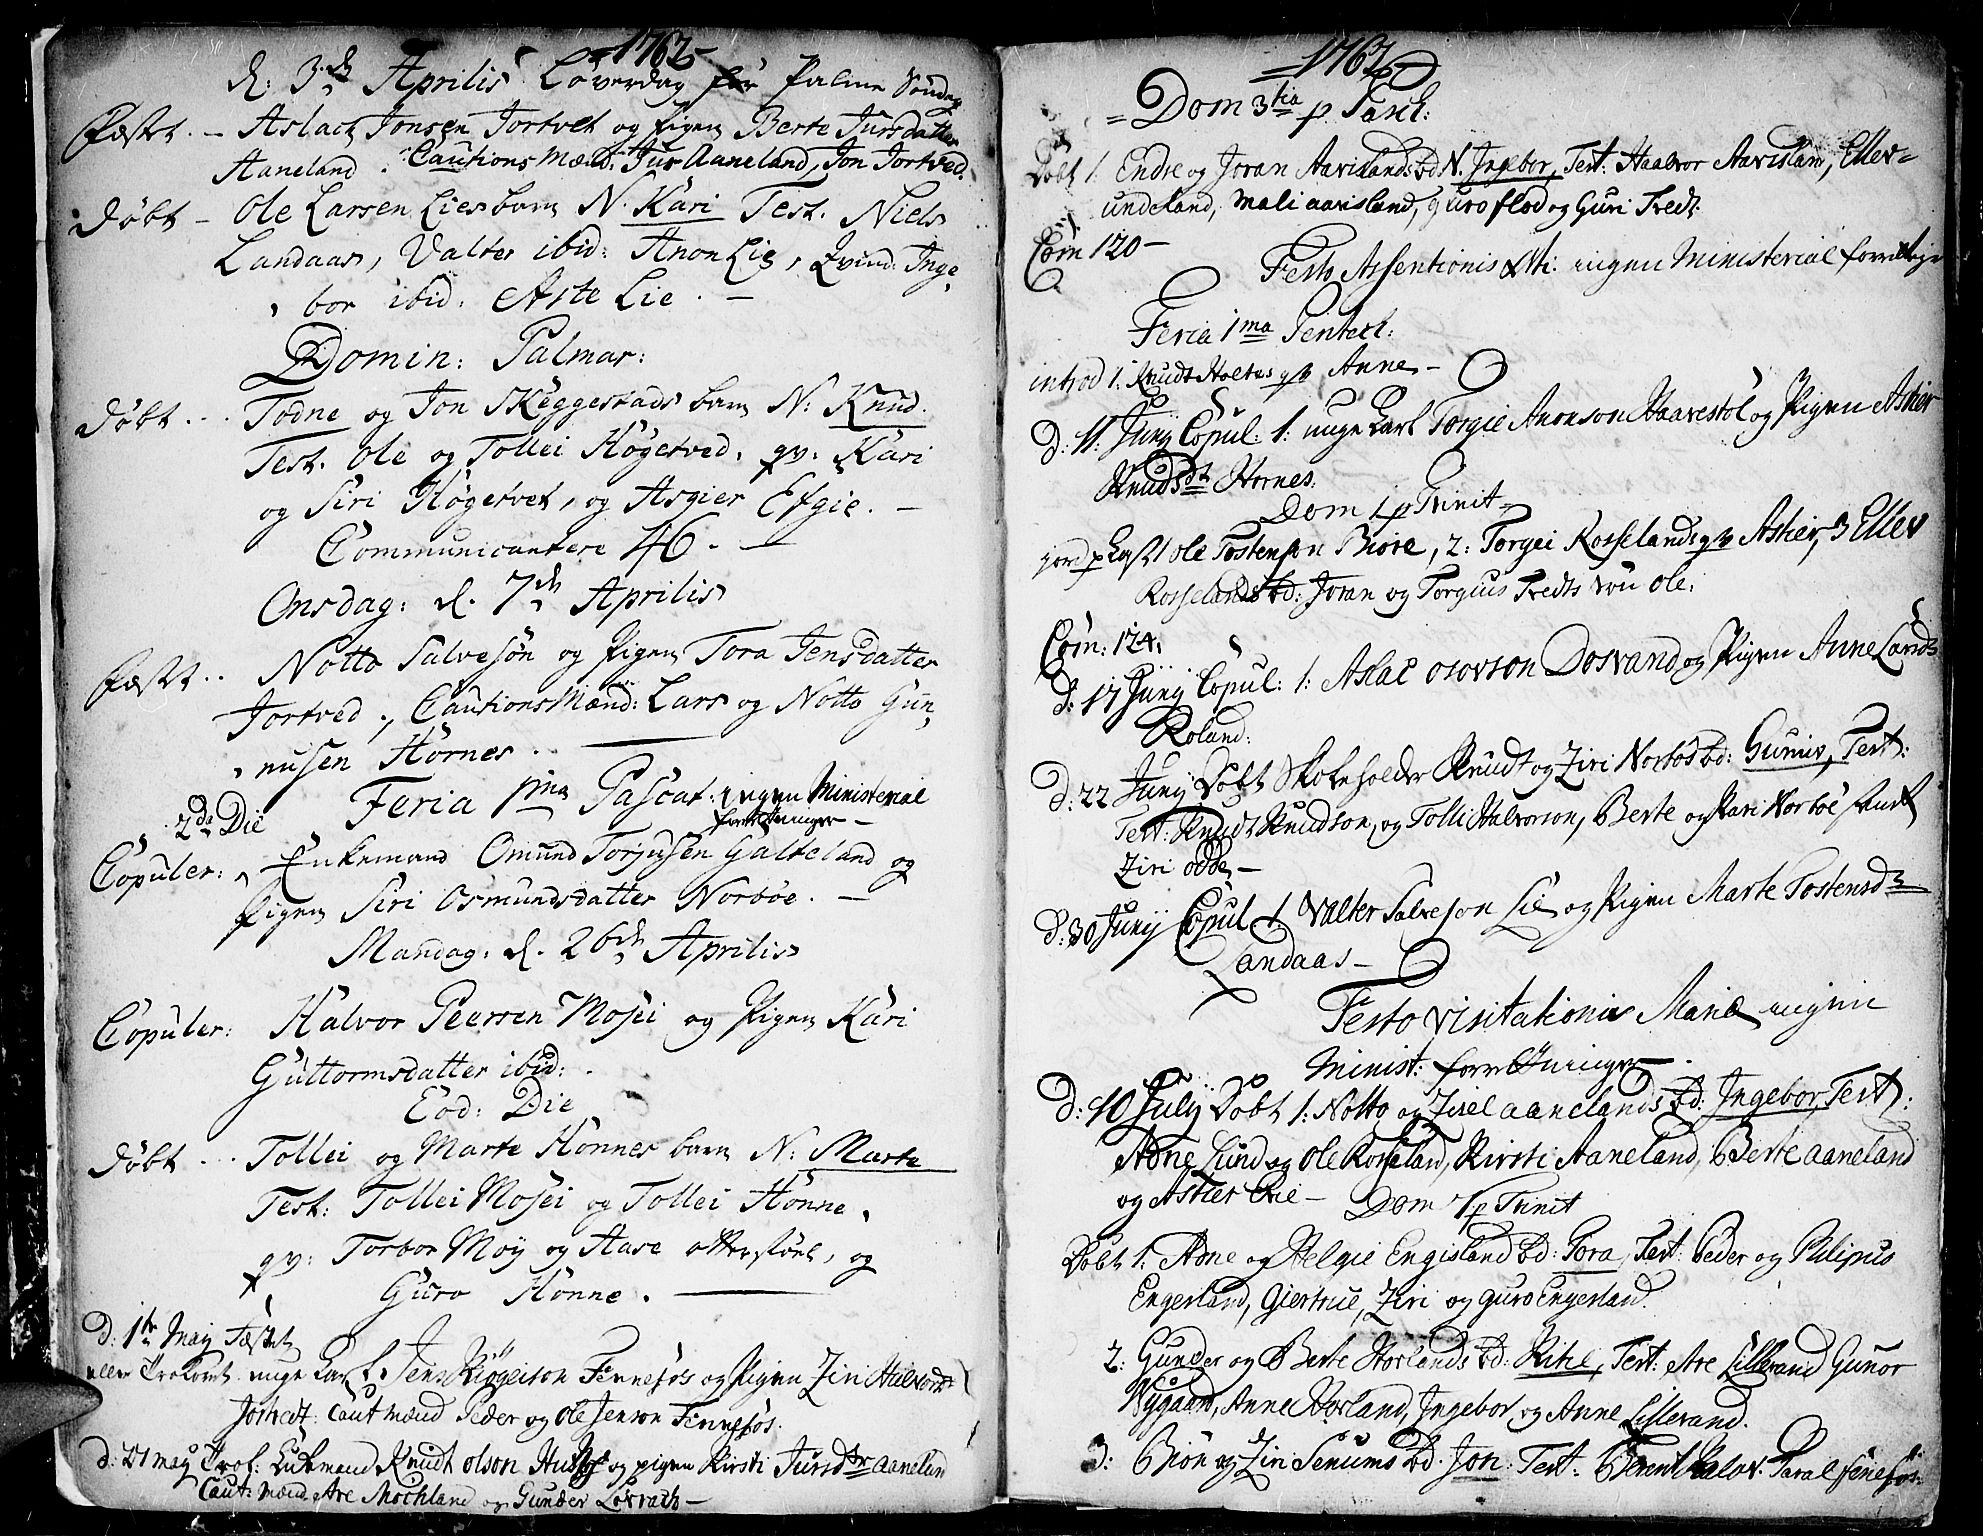 1762
d. 3de Aprilis Löverdag för Palme Söndag
Fæstet. – Aslach Jonsen Jortvet og Pigen Berte Jursdatter
Aaneland. Cautions Mænd: Jur Aaneland, Jon Jortved.
Döbt – Ole Larsen Lies barn N. Kari Test. Niels
Landaas, Valter ibid: Anon Lie, Qvind: Inge
bor ibid. Aste Lie. –
Domin: Palmar:
Döbt... Todne og Jon Skeggestads barn N: Knud.
Test. Ole og Tollei Högetved. qv: Kari
og Siri Högetvet, og Asgier Efgie. –
Communicantere 46. –
Onsdag: d. 7de Aprilis
Fæstet.. Notto Salvesön og Pigen Tora Jensdatter
Jortved., Cautions Mænd: Lars og Notto Gun
nusen Hornes. –
Feria 1ma Pascat: ingen Ministerial
forretninger –
2da Die
Copuler: Enkemand Omund Torjusen Galteland og
Pigen Siri Osmundsdatter Norböe. –
Mandag: d. 26de Aprilis
Copuler: Halvor Peersen Mosei og Pigen Kari
Guttormsdatter ibid:.
Eod: Die
Döbt... Tollei og Marte Honnes barn N: Marte
Test: Tollei Mosei og Tollei Honne.
qv: Torbor Moÿ og Aase, og
Guro Honne. –
D: 1te Maÿ Fæstet
eller Trolovet unge Karl Jens Fennefos og Pigen Ziri Halvorsdt
Jortvedt: Caut mænd Peder og Ole Jenson Fennefos.
d: 27 maÿ Trol: Enkmand Knudt Olson og pigen Kirsti Jursdtr Aanelan
Caut: mænd Are Mochland og Gunder
1762
Dom 3tia p. Pasch:
Döbt 1. Endre og Joran Aavislands bd N. Ingebor, Test: Haalvor Aavislan, Ellev
undeland, Mali aavisland, guro flod og Guri Tredt.
Com 120 –
Festo Assentionis Xsti: ingen Ministerial forretninger
Feria 1ma Pentech:
introd 1: Knudt Holtes qv Anne –
D: 11: Junÿ Copul: 1: unge Karl Torgie Anonson Haavestol og Pigen Asher
Knudsdt Hornes.
Dom 1 p Trinit
1 Ole Tostenson Biore, 2: Torgei Rosselands qv Asher, 3 Ellev
Rosselands bd: Joran og Torgius Tredts Ole:
Com: 124:
D: 17 Junÿ Copul: 1: Aslac Osovson Dosvand og Pigen Anne Larsd
Roland:
D: 22 Junÿ Döbt Skoleholder Knudt og Ziri Norböes bd: Gunius, Test:
Test: Knudt Knudson, og Tolli Halvorson, Berte og Kari Norböe samt
Ziri odde –
D: 30 Junÿ Copul 1. Valter Salveson Lie og Pigen Marte Tostensd
Landaas –
Festo Visitationis Mariæ ingen
Minist: forretninger –.
D: 10 Julÿ Döbt 1: Notto og Zirel aanelands bd: Ingebor, Test:
Adne Lund og Ole Rosseland, Kirsti Aaneland, Berte aaneland
og Asher –
Dom 7 p Trinit
Döbt 1: Adne og Helgie Engisland bd: Tora, Test: Peder og Pilipus
Engesland, Giertrue, Ziri og guro Engesland.
2: Gunder og Berte Horlands bd: Kitel, Test: Are Lillesand Gunor
Nÿgaard, Anne Horland, Ingebor og Anne Lillesand.
3: Biön og Ziri Senums bd. Jon: Test: Berent